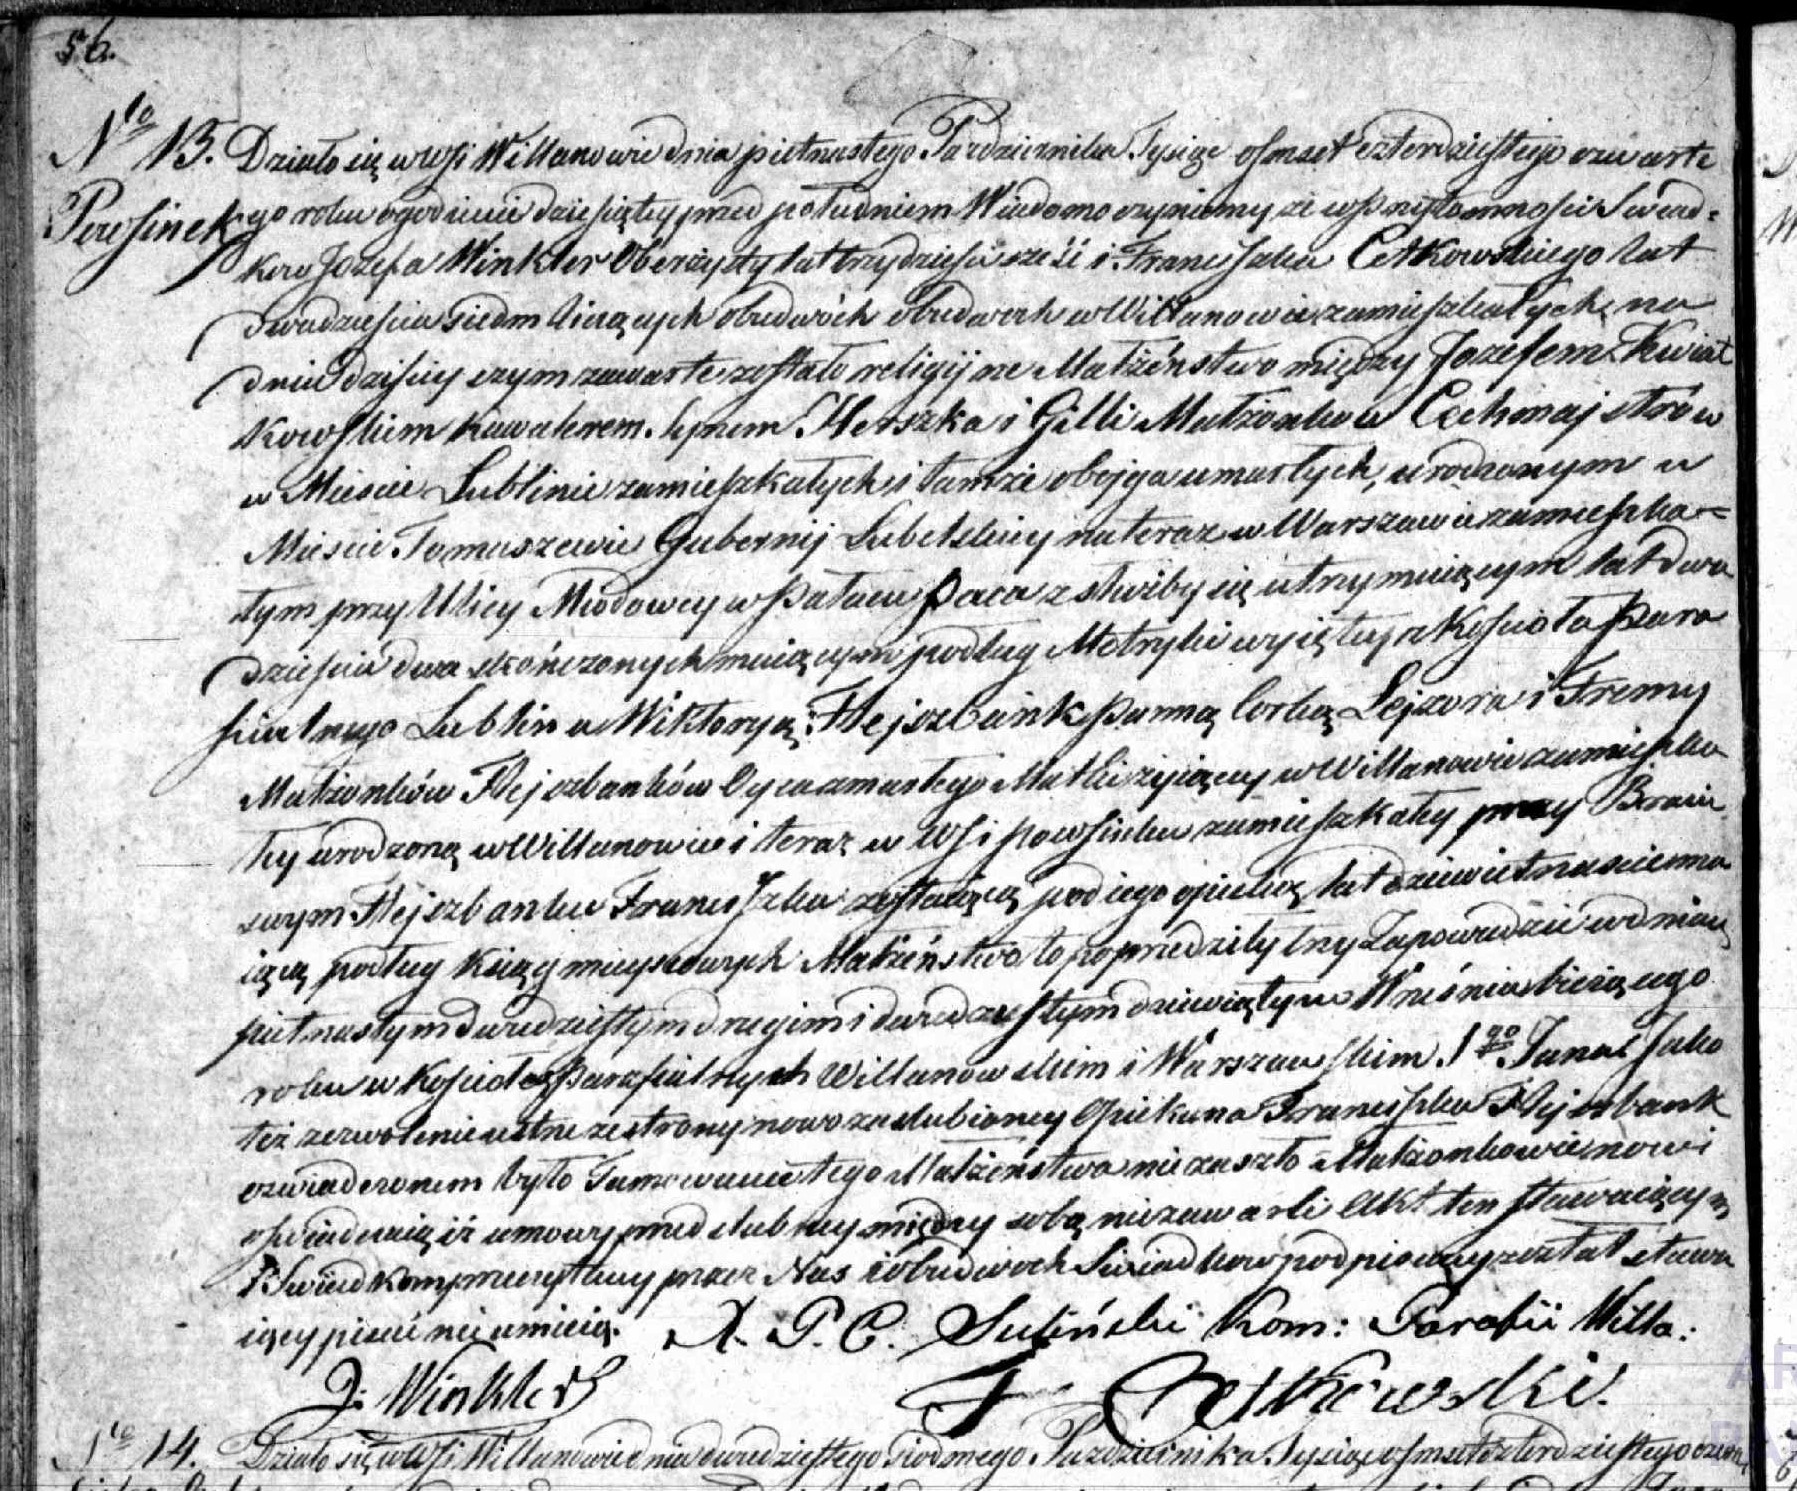 56.
No 13. Działo się w Wsi Willanowie dnia pietnastego Pazdziernika Tysiąc osmset czterdziestego czwarte
Powsinek go roku o godzinie dziesiątey przed południem Wiadomo czyniemy że w przytomności Swiad=
kow Jozefa Winkler Oberżysty lat trzydzieści sześć i Franciszka Cetkowskiego lat
dwadzieścia siedm liczących obudwóch w Willanowie zamieszkałych, na
dniu dzisieyszym zawarte zostało religijne Małżeństwo między Jozefem Kwiat
kowskim kawalerem. Synem Herszka i Gitli Małżonkow Cechmajstrów
w Miescie Lublinie zamieszkałych i tamże obojga umarłych, urodzonym w
Miescie Tomaszewie Gubernij Lubelskiey na teraz w Warszawie zamieszka=
łym przy Ulicy Miodowey w Pałacu Paca z służby się utrzymuiącym lat dwa
dzieścia dwa skończonych maiącym podług Metryki wyiętey z Kościoła Para
fialnego Lublin a Wiktoryą Flejszbank Panną Corką Lejzora i Fremy
Małżonków Flejszbanków Oyca zmarłego Matki żyiącey w Willanowie zamieszka
łey urodzoną w Willanowie i teraz w Wsi Powsinku zamieszkałey przy Bracie
swym Flejszbanku Franciszku zostaiącą pod iego opieką, lat dziewietnascie ma
iącą podług Księg mieyscowych Małżeństwo to poprzedziły trzy Zapowiedzie w dniach
pietnastym dwudziestym drugim i dwudziestym dziewiątym Wrzesnia bieżącego
roku w Kościołach Parafialnych Willanowskim i Warszawskim. 1go Jana Jako
też zezwolenie ustne ze strony nowozaslubioney Opiekuna Franciszka Flejszbank
oswiadczonem było Tamowanie tego Małżeństwa nie zaszło Małżonkowie nowi
oswiadczaią iż umowy przedslubney między sobą niezawarli Akt ten stawaiącym
i Swiadkom przeczytany przez Nas i obudwoch Swiadkow podpisany został stawa
iący pisać nie umieią. X. P. C. Suliński Kom: Parafii Willa:
J: Winkler F Cetkowski.
No 14. Działo się w Wsi Willanowie dnia dwudziestego siodmego Pazdziernika Tysiąc osmset czterdziestego czwar